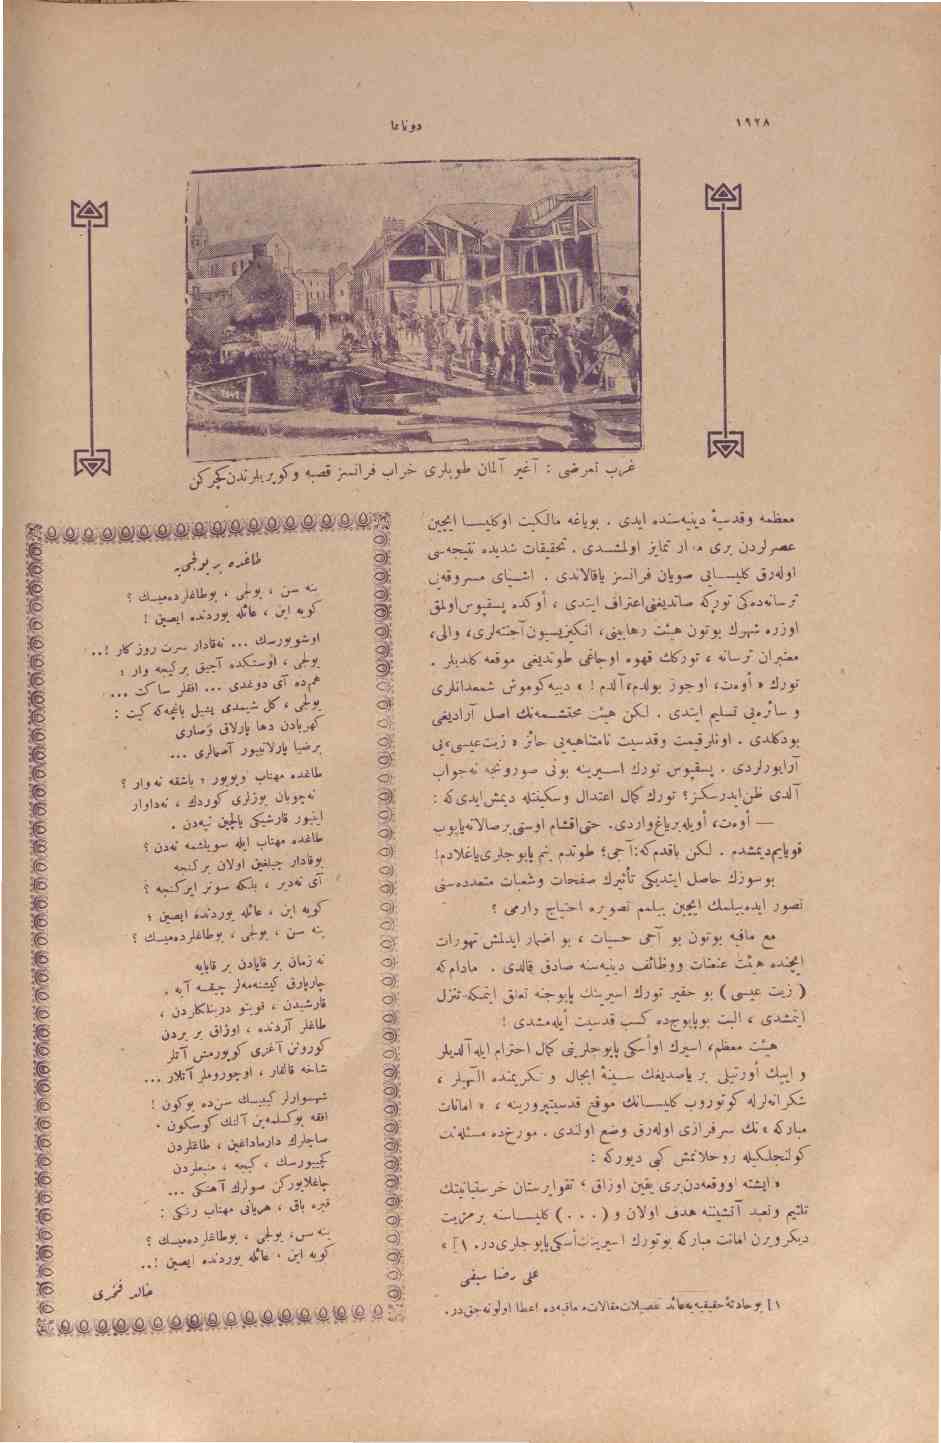 ١٩٢٨
دونانما
غرب تعرضی : آغیر آلمان طوپلری خراب فرانسز قصبه وکوپریلرندن کچرکن
معظمه وقدسیهٔ دینیه‌سنده ایدی . بویاغه مالکیت اوکلیسا ایچین
عصرلردن بری مدار تمایز اولمشدی . تحقیقات شدیده نتیجه‌سی
اوله‌رق کلیسایی صویان فرانسز یاقالاندی . اشیای مسروقه‌یی
ترسانه‌ده‌کی تورکه صاتدیغنی اعتراف ایتدی ، أوکده پسقپوس اولمق
اوزره شهرك بوتون هیئت رهابینی، انکیزیسیون آجنته‌لری، والی،
معتبران ترسانه ، تورکك قهوه اوجاغی طوتدیغی موقعه کلدیلر .
تورك « أوت، اوجوز بولدم، آلدم ! » دییه کوموش شمعدانلری
و سائره‌یی تسلیم ایتدی . لکن هیئت محتشمه‌نك اصل آرادیغی
بودکلدی . اونلر قیمت وقدسیت نامتناهیه‌یی حائز « زیت عیسی»یی
آرایورلردی . پسقپوس تورك اسیرینه بونی صورونجه نه‌جواب
آلدی ظن ایدرسکز؟ تورك کمال اعتدال وسکینتله دیمش ایدی که :
— أوت، اویله بر یاغ واردی . حتی اقشام اوستی بر صالاته یاپوب
قویایم دیمشدم . لکن باقدم که: آجی؛ طوتدم بنم پاپوجلری یاغلادم!
بوسوزك حاصل ایتدیکی تأثیرك صفحات وشعبات متعدده‌سنی
تصور ایده‌بیلمك ایچین بیلمم تصویره احتیاج وارمی ؟
مع مافیه بوتون بو آجی حسیات ، بو اضمار ایدلمش تهورات
ایچنده هیئت عنعنات ووظائف دینیه‌سنه صادق قالدی . مادام که
( زیت عیسی ) بو حقیر تورك اسیرینك پابوجنه تعلق ایتمکه تنزل
ایتمشدی ، البت بوپابوج‌ده کسب قدسیت أیله‌مشدی !
هیئت معظم، اسیرك اوأسکی پابوجلرینی کمال احترام ایله آلدیلر
و ایپك أورتیلی بر یاصدیغك سینهٔ ابجال و تکریمنده الٓهیلر ،
شکرانه‌لرله کوتوروب کلیسانك موقع قدسیتپرورینه ، « امانات
مبارکه » نك سرفرازی اوله‌رق وضع اولندی . مورخ‌ده مسئله‌نك
کولنجلکیله روحلانمش کبی دیورکه :
« ایشته اووقعه‌دن‌بری یقین اوزاق ؛ تقوابرستان خرستیانیتك
تلثیم وتعبد آتشیننه هدف اولان و (...) کلیساسنه بر مزیت
دیکر ویرن امانت مبارکه بوتورك اسیرینك أسکی پابوجلری‌در. [١] »
علی رضا سیفی
[١ بو حادثهٔ حقیقیه‌یه عائد تفصیلات مقالات مابعدده اعطا اولونه‌جق‌در .
طاغده بر یولجی‌یه
ینه سن ، یولجی ، بوطاغلرده‌میسك ؟
کویه این ، عائله یوردنده ایصین !
اوشویورسك ... نه‌قادار سرت روزکار !..
یولجی ، اوستکده آجیق برکیجه وار ؛
هم‌ده آی دوغدی ... افقلر ساکت ...
یولجی ، کل شیمدی یشیل باغچه‌که کیت :
کهربادن دها پارلاق وصاری
بر ضیا پارلاتییور آصمالری ...
طاغده مهتاب نه‌ویریور ؛ باشقه نه وار ؟
نه‌چوبان یوزلری کوردك ، نه‌داوار
اینیور قارشیکی یالچین تپه‌دن .
طاغده مهتاب ایله سویلشمه نه‌دن ؟
بوقادار چیلغین اولان بر کنجه
آی نه‌دیر ، بلکه سونر ایرکنجه ؟
کویه این ، عائله یوردنده ایصین ؛
ینه سن ، یولجی ، بوطاغلرده‌میسك ؟
نه زمان بر قایادن بر قایایه
چارپارق کیشنه‌مه‌لر چیقسه آیه .
قارشیدن ، قوینو دربنلکلردن ،
طاغلر آردنده ، اوزاق بر یردن
کورونن آغزی کوپورمش آتلر
شاخه قالقار ، اوچورومار آتلار ...
شهسوارلر کیبیسك سن‌ده بوکون !
افقه یوکسلمه‌ین آلنك کوسکون .
صاچلرك دارماداغین ، طاغلردن
کچییورسك ، کیجه ، منبعلردن
چاغلایورکن صولرك آهنکی ...
قبره باق ، هریانی مهتاب رنکی :
ینه سن، یولجی ، بوطاغلرده‌میسك ؟
کویه این ، عائله یوردنده ایصین !..
خالد فخری